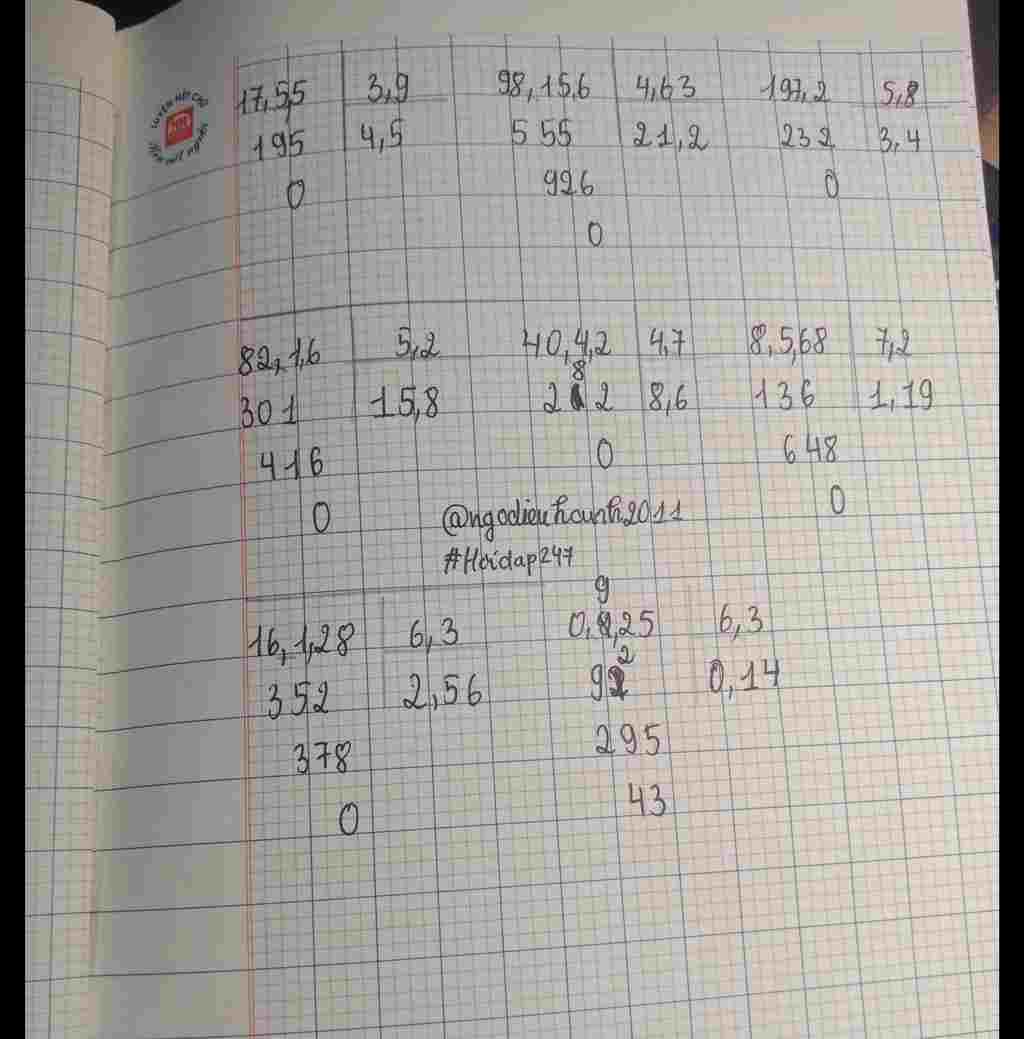 17,5,5 3,9 98,15,6 4,63 197,2 5,8
195 4,5 5 55 21,2 232 3,4
0 926 0
0
82,1,6 5,2 40,4,2 4,7 8,5,68 7,2
301 15,8 282 8,6 136 1,19
416 0 648
0 @ngodieuhounh2011 0
#Hoidap247
16,1,28 6,3 0,9,25 6,3
352 2,56 92 0,14
378 295
0 43